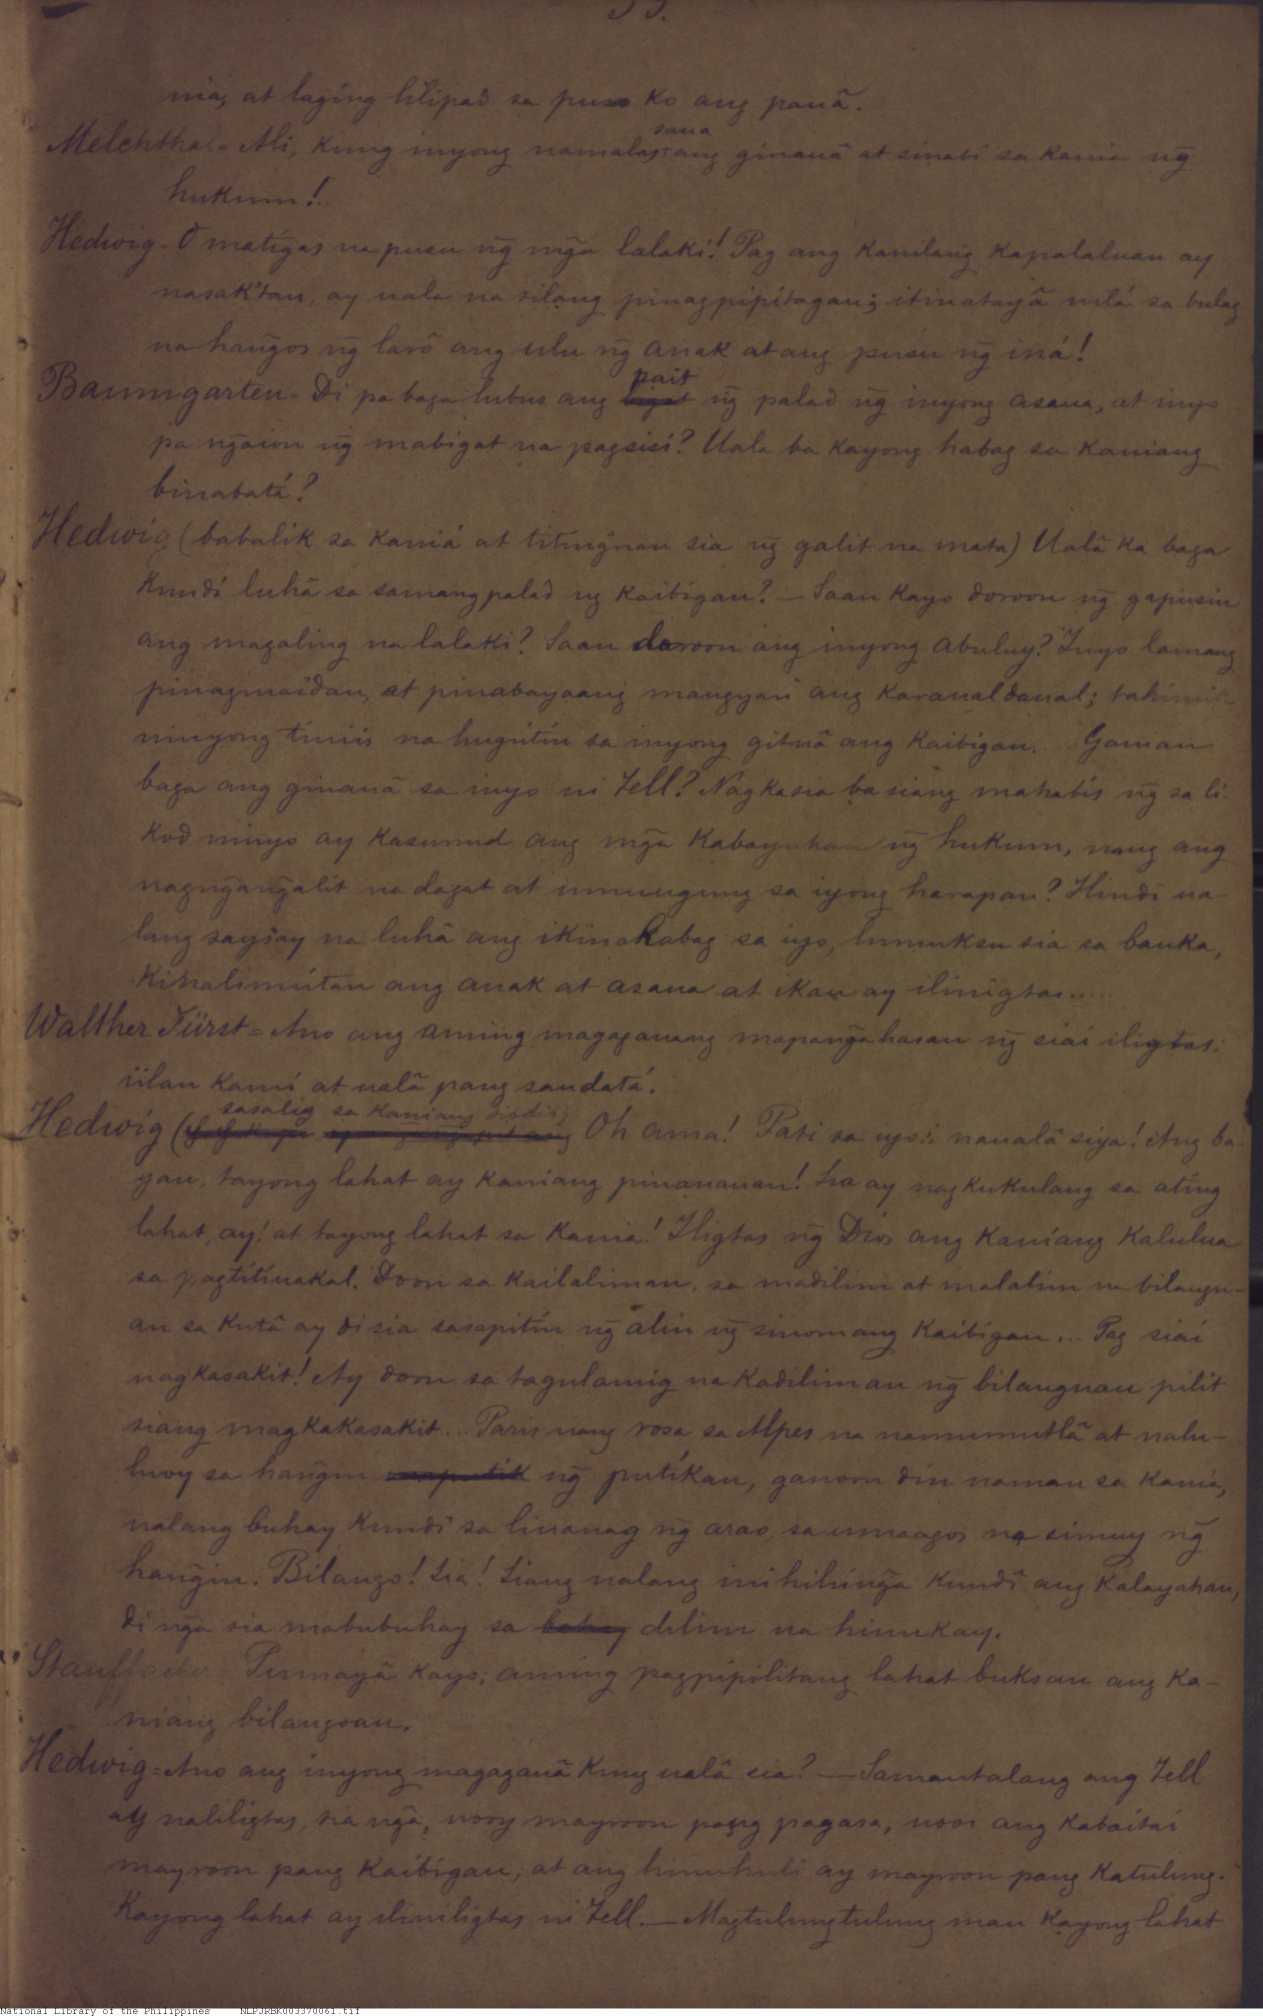 53.
niá, at laging lilipad sa puso ko ang panâ.
Melchthal= Ah, kung inyong namalas sana ang ginauâ at sinabi sa kania ng̃
hukum!
Hedwig- O matigas na pusu ng̃ mg̃a lalaki! Pag ang kanilang kapalaluan ay
nasaktan, ay uala na silang pinagpipitagan; itinatayâ nilá sa bulag
na hang̃os ng̃ larô ang ulu ng̃ anak at ang pusu ng̃ iná!
Baumgarten- Di pa baga lubus ang bigat pait ng̃ palad ng̃ inyong asaua, at inyo
pa ng̃aion ng̃ mabigat na pagsisi? Uala ba kayong habag sa kaniang
binabatá?
Hedwig (babalik sa kaniá at titingnan sia ng̃ galit na mata) Ualâ ka baga
kundi luhâ sa samang palad ng kaibigan? — Saan kayo doroon ng̃ gapusin
ang magaling na lalaki? Saan doroon ang inyong abuluy? Inyo lamang
pinagmaídan, at pinabayaang mangyari ang karaualdaual; tahimik
ninyong tiniis na hugutin sa inyong gitnâ ang kaibigan. Ganian
baga ang ginauâ sa inyo ni Tell? Nagkasia ba siang mahabis ng̃ sa li-
kod ninyo ay kasunud ang mg̃a kabayuhan ng̃ hukum, nang ang
nagng̃ang̃alit na dagat at umuugung sa iyong harapan? Hindi ua-
lang saysay na luhâ ang ikinahabag sa iyo, lumuksu sia sa bauka,
kinalimútan ang anak at asaua at ikau ay iliniglas.....
Walther Fürst= Ano ang aming magagauang mapang̃ahasan ng̃ siai iligtas:
iilan kamí at ualâ pang sandatá.
Hedwig (sasalig sa kaniang dibdib) Oh ama! Pati sa iyo'i naualâ siya! Ang ba-
yan, tayong lahat ay kaniang pinanauan! Sia ay nagkukulang sa ating
lahat, ay! at tayong lahat sa kania! Iligtas ng̃ Dios ang kaniang kalulua
sa pagtitinakal. Doon sa kailaliman, sa madilim at malalim na bilangu-
an sa kutâ ay di sia sasapitin ng̃ alin ng̃ sinomang kaibigan... Pag siai
nagkasakit! Ay doon sa tagulamig na kadiliman ng̃ bilanguan pilit
siang magkakasakit... Paris nang rosa sa Alpes na namumutlâ at nalu-
luoy sa hang̃in maputik ng̃ putíkan, ganoon din naman sa kania,
ualang buhay kundi sa liuanag ng̃ arao, sa umaagos na simuy ng̃
hang̃in. Bilango! Sia! Siang ualang inihihing̃a kundi ang kalayahan,
di ng̃a sia mabubuhay sa dilim na hinukay.
Stauffacher= Pumayâ kayo; aming pagpipilitang lahat buksan ang ka-
niang bilangoan.
Hedwig= Ano ang inyong magagauâ kung ualâ sia? — Samantalang ang Tell
ay naliligtas, sia ng̃a, nooy mayroon pang pagasa, noo'i ang kabaitai
mayroon pang kaibigan, at ang hinuhuli ay mayroon pang katulung.
Kayong lahat ay iliniligtas ni Tell. — Magtulungtulung man kayong lahat
National Library of the Philippines NLPJRBK003370061.tif